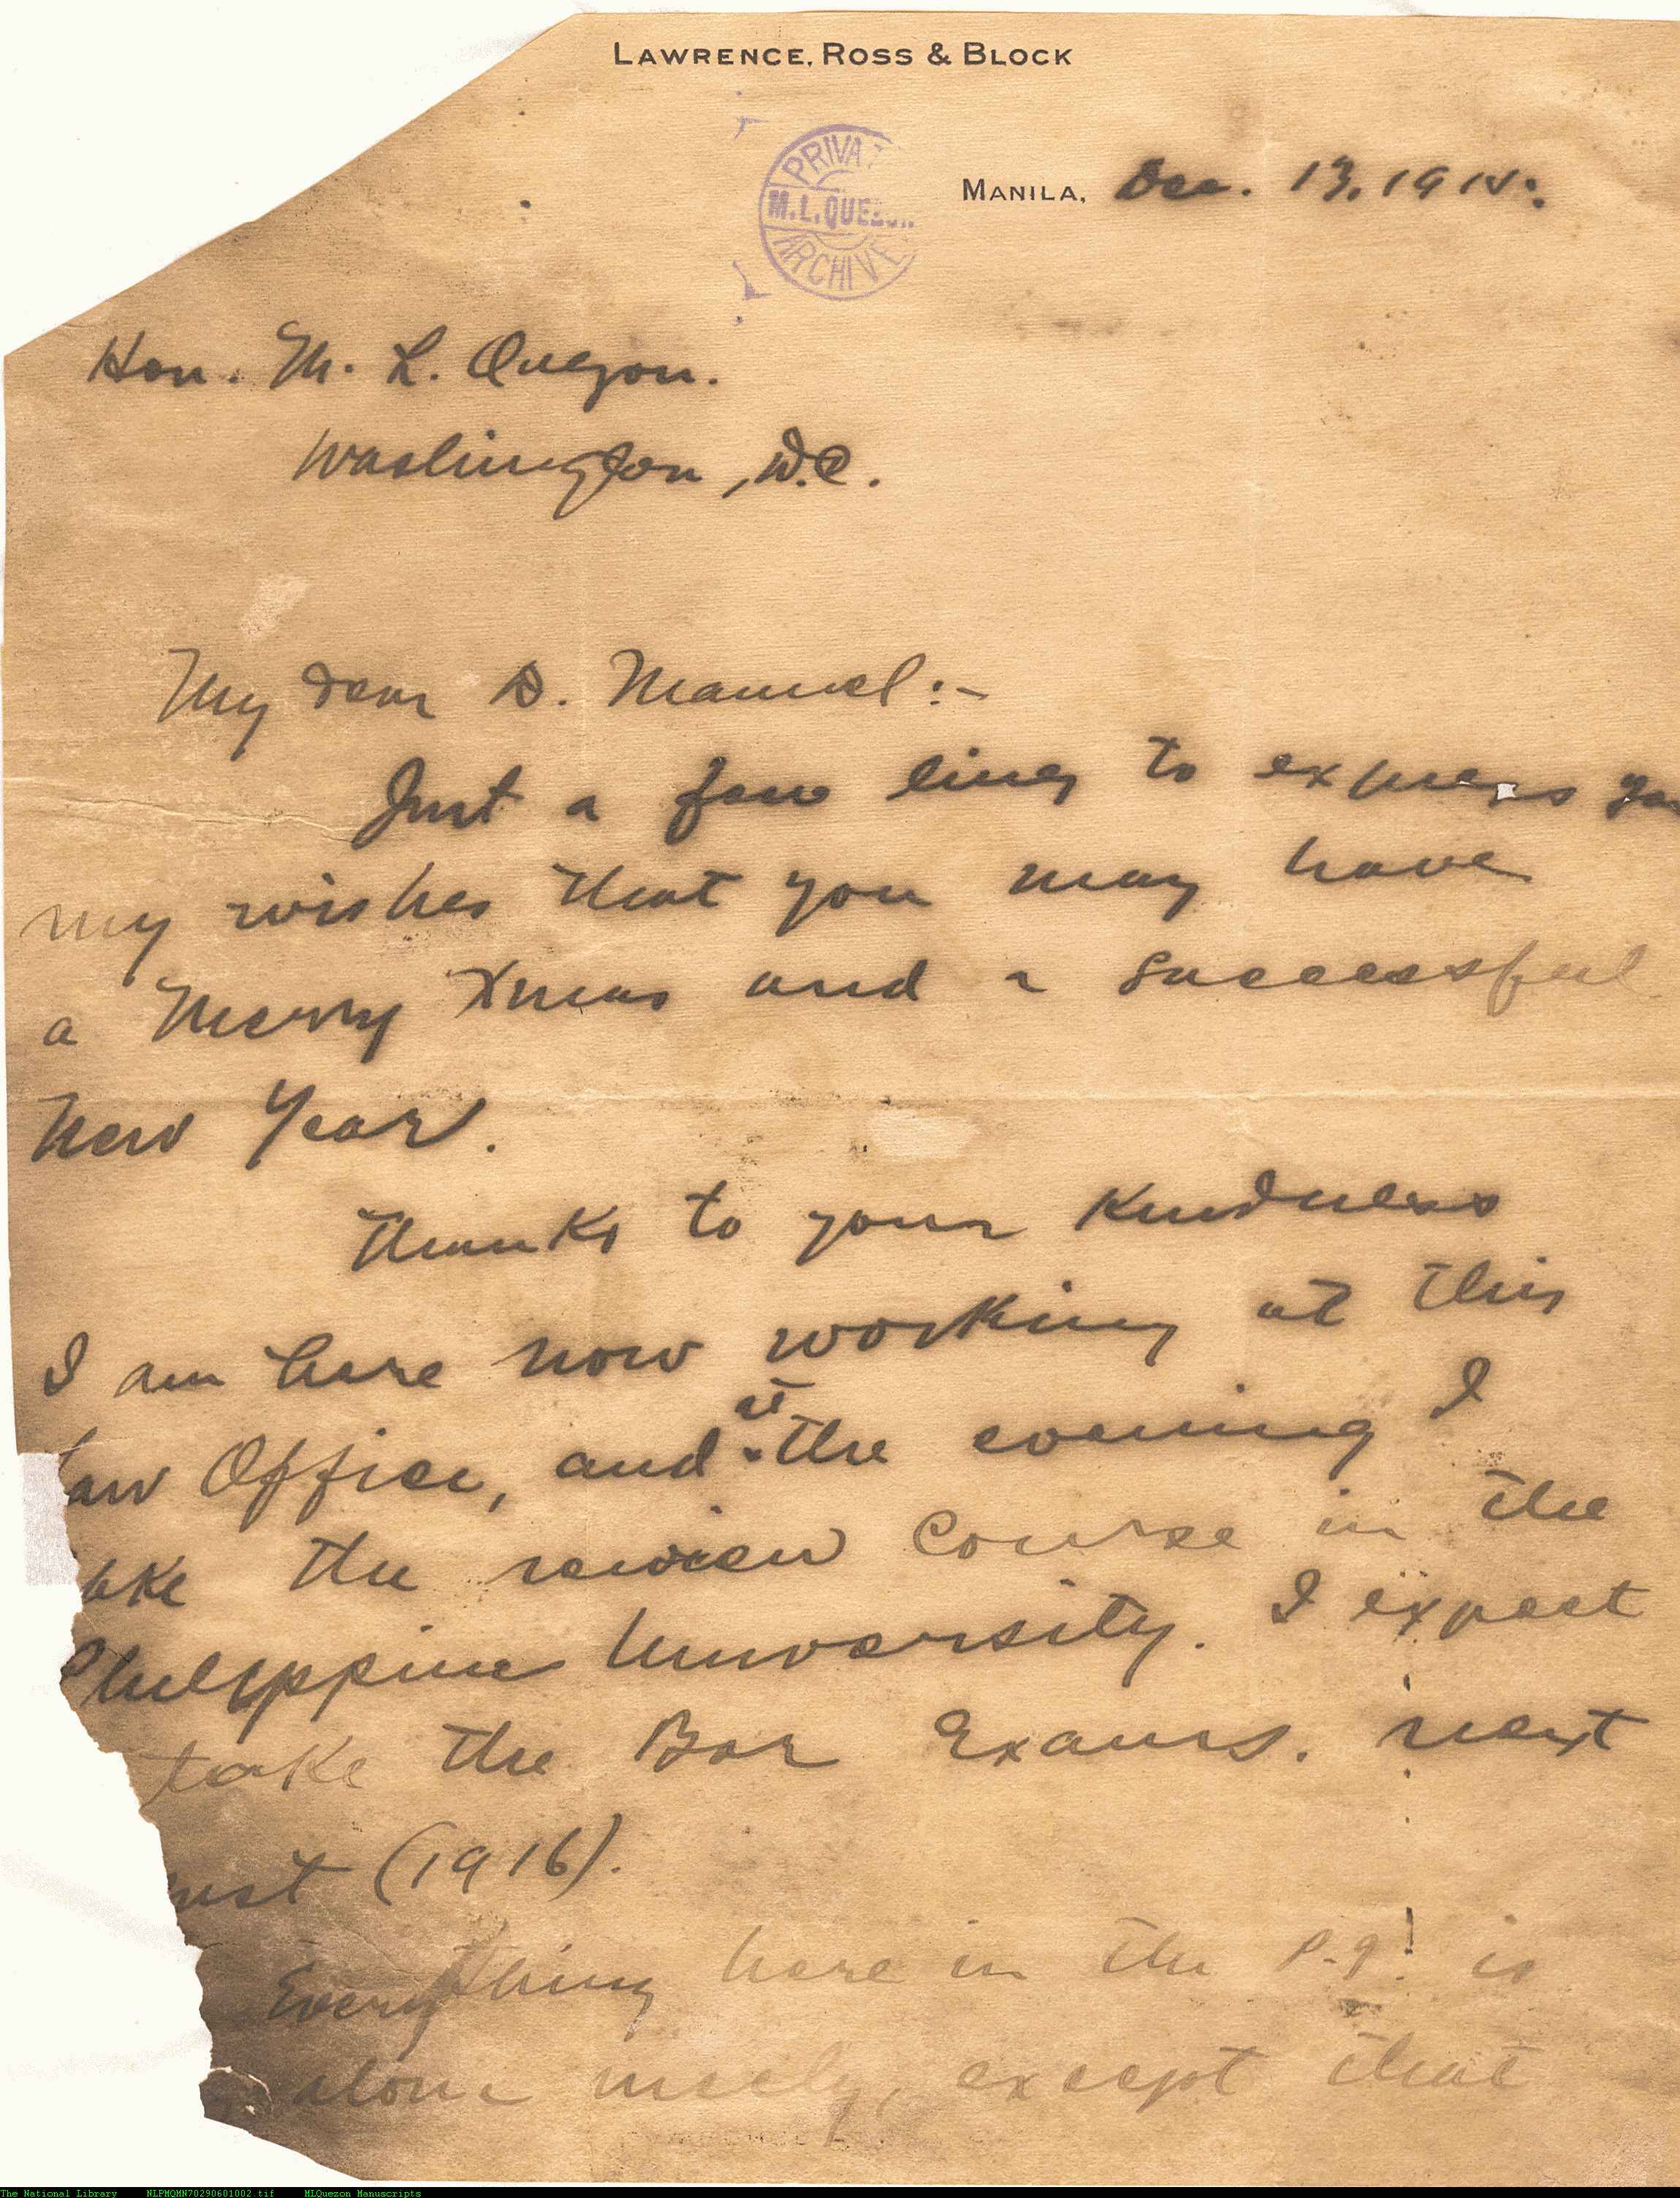 LAWRENCE, ROSS & BLOCK
PRIVAT
M.L.QUEZON
ARCHIVE
MANILA, Dec. 13, 1915.
Hon. M. L. Quezon.
Washington, D.C.
My dear D. Manuel:-
Just a few lines to express you
my wishes that you may have
a Merry Xmas and a successful
New Year.
Thanks to your kindness
I am here now working at this
Law Office, and at the evening I
take the review course in the
Philippine University. I expect
take the Bar Exams. next
ust (1916).
Everything here in the P.I. is
alone nicely, except that
The National Library NLPMQMN70290601002.tif MLQuezon Manuscripts